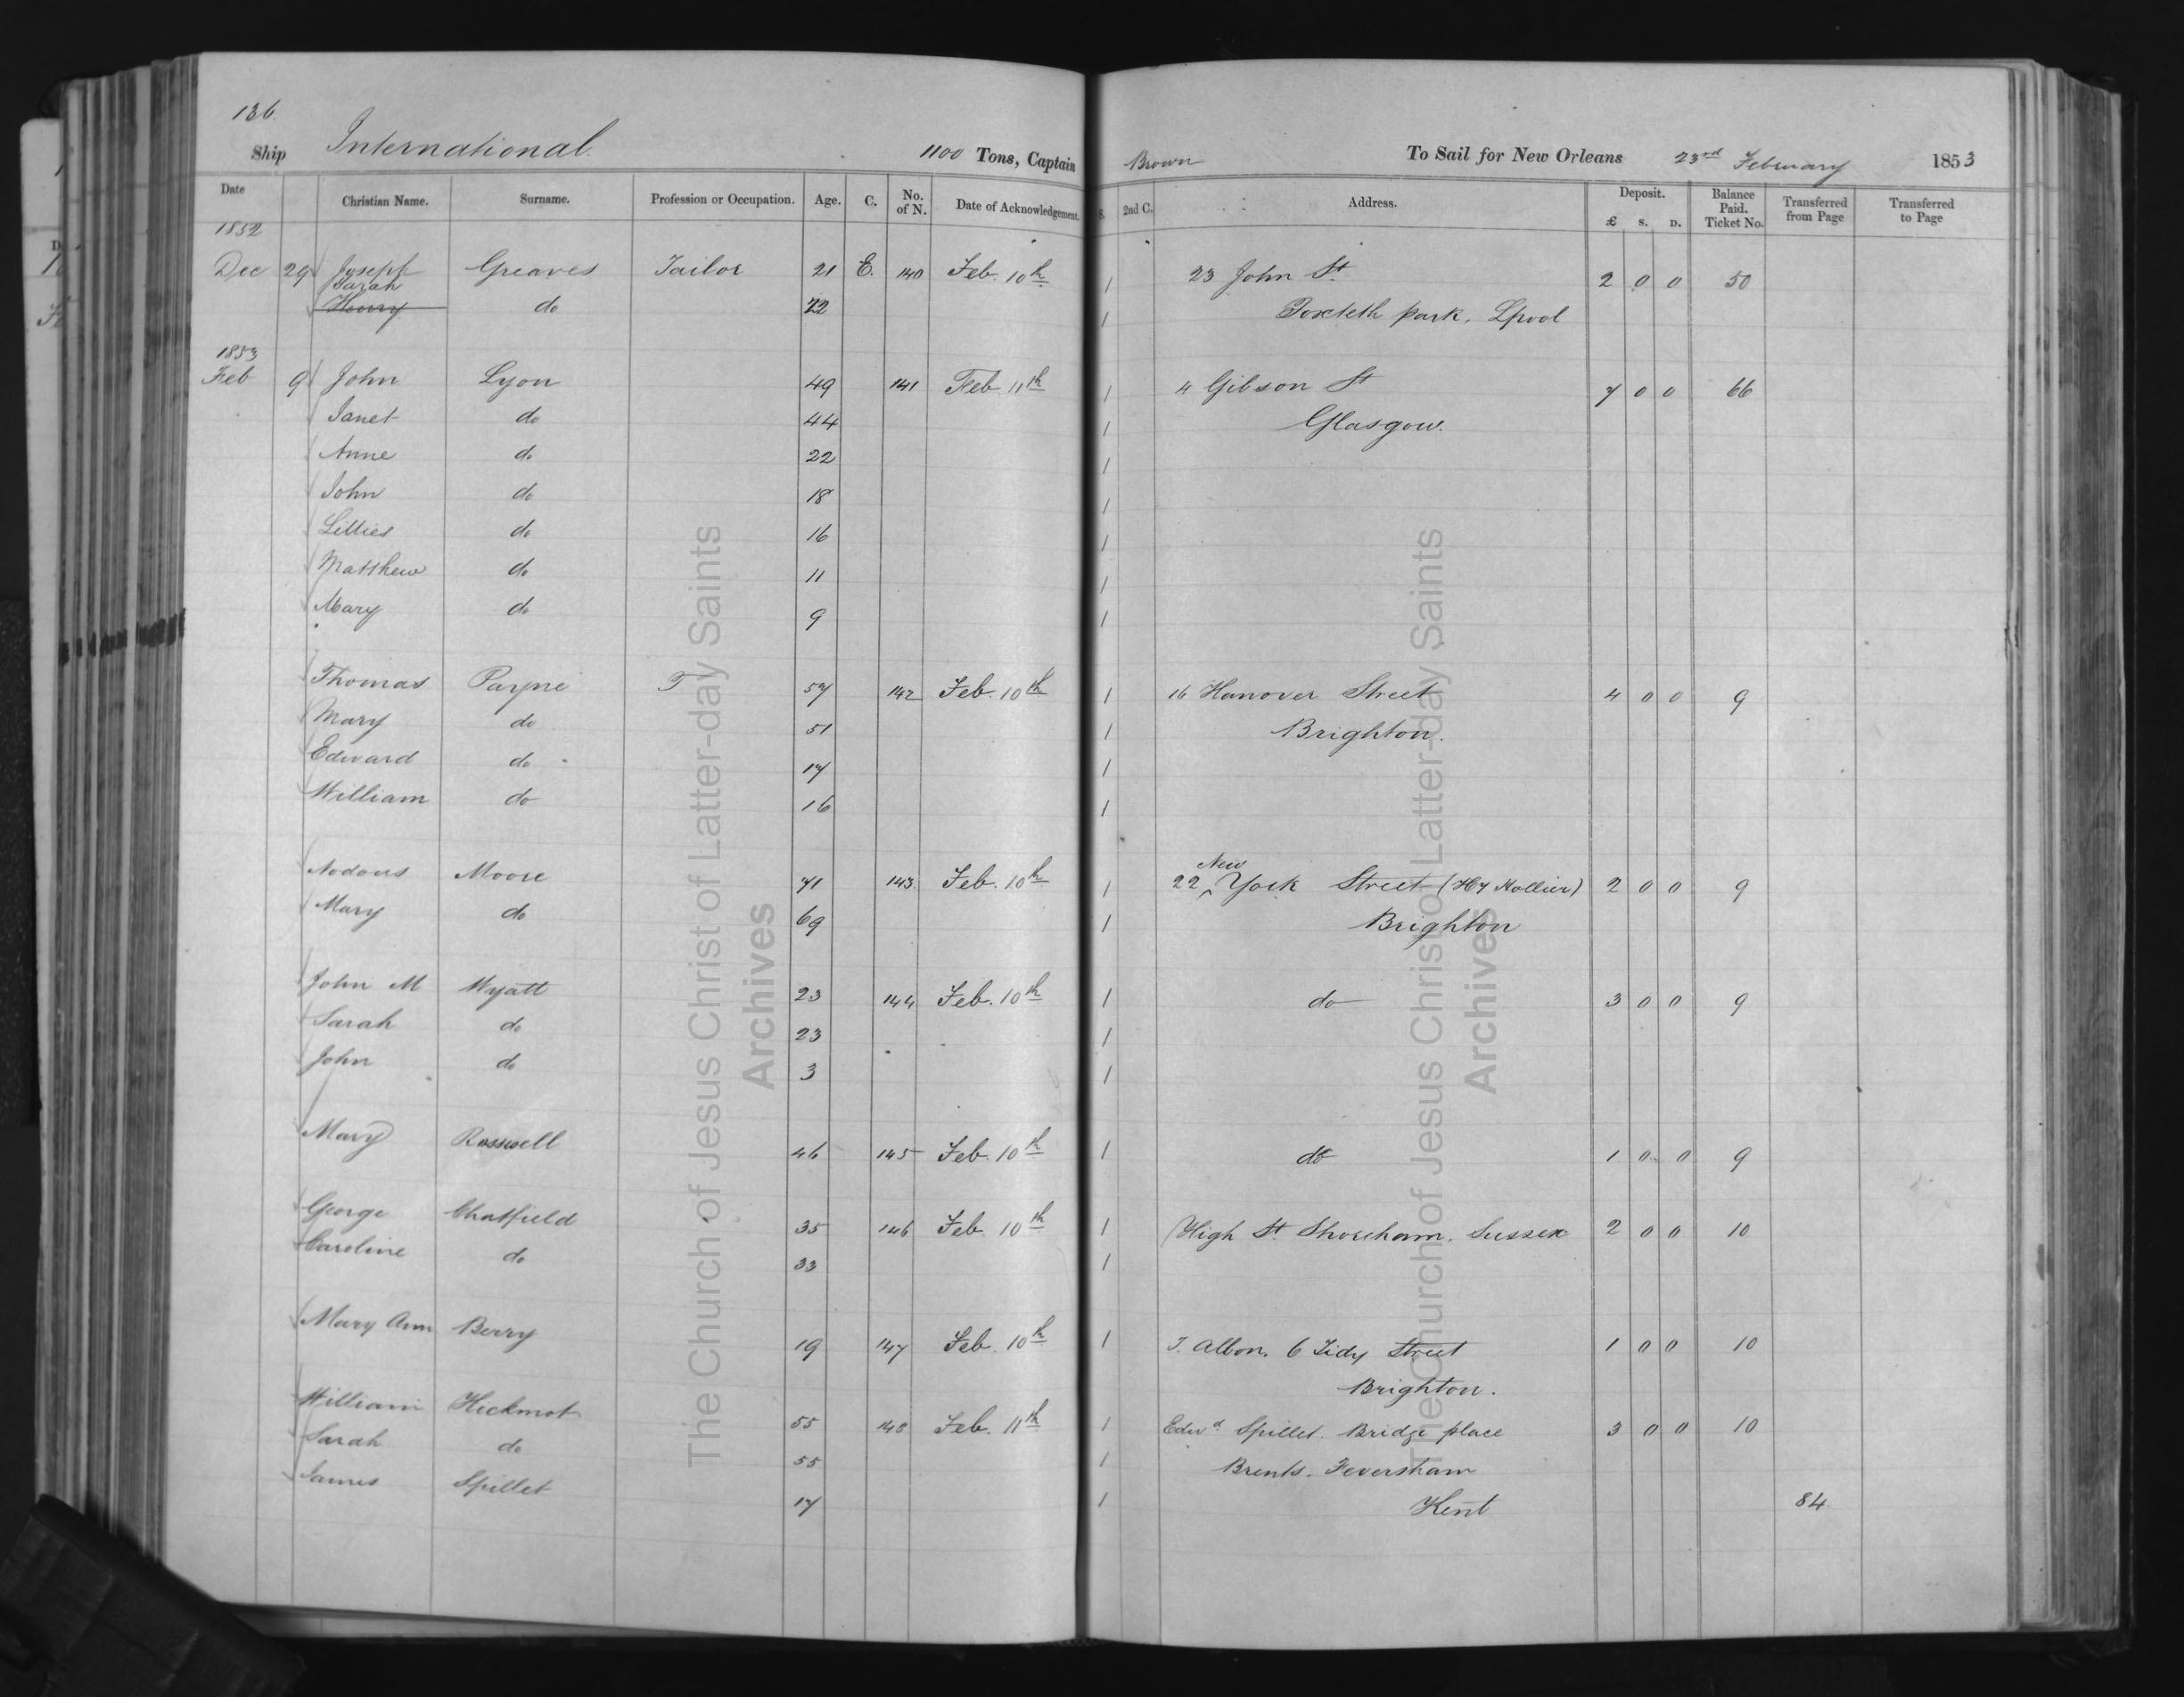 136
Ship International 1100 Tons, Captain Brown To Sail for New Orleans 23rd February 1853
Date Christian Name. Surname. Profession or Occupation. Age. C. No. of N. Date of Acknowledgement. S. 2nd C. Address. Deposit. £ S. D. Balance Paid. Ticket No. Transferred from Page Transferred to Page
1852
Dec 29 Joseph Greaves Tailor 21 E. 140 Feb. 10th 1 23 John St 2 0 0 50
Sarah
Henry do 22 1 Toxteth park. Lpool
1853
Feb 9 John Lyon 49 141 Feb 11th 1 4 Gibson St 7 0 0 66
Janet do 44 1 Glasgow.
Anne do 22 1
John do 18 1
Lillies do 16 1
Matthew do 11 1
Mary do 9 1
Thomas Payne T 57 142 Feb. 10th 1 16 Hanover Street 4 0 0 9
Mary do 51 1 Brighton.
Edward do 17 1
William do 16 1
New
Moore 71 143 Feb. 10th 1 22 ^ York Street (Hy Hollier) 2 0 0 9
Mary do 69 1 Brighton
John M Wyatt 23 144 Feb. 10th 1 do 3 0 0 9
Sarah do 23 1
John do 3 1
Mary Rosswell 46 145 Feb. 10th 1 do 1 0 0 9
George Chatfield 35 146 Feb. 10th 1 High St. Shoreham. Sussex 2 0 0 10
Caroline do 33 1
Mary Ann Berry 19 147 Feb. 10th 1 J. Albon. 6 Tidy Street 1 0 0 10
Brighton.
William Hickmot 55 148 Feb. 11th 1 Edwd Spillet. Bridge place 3 0 0 10
Sarah do 55 1 Brents. Feversham
James Spillet 17 1 Kent 84
The Church of Jesus Christ of Latter-day Saints
Archives
The Church of Jesus Christ of Latter-day Saints
Archives